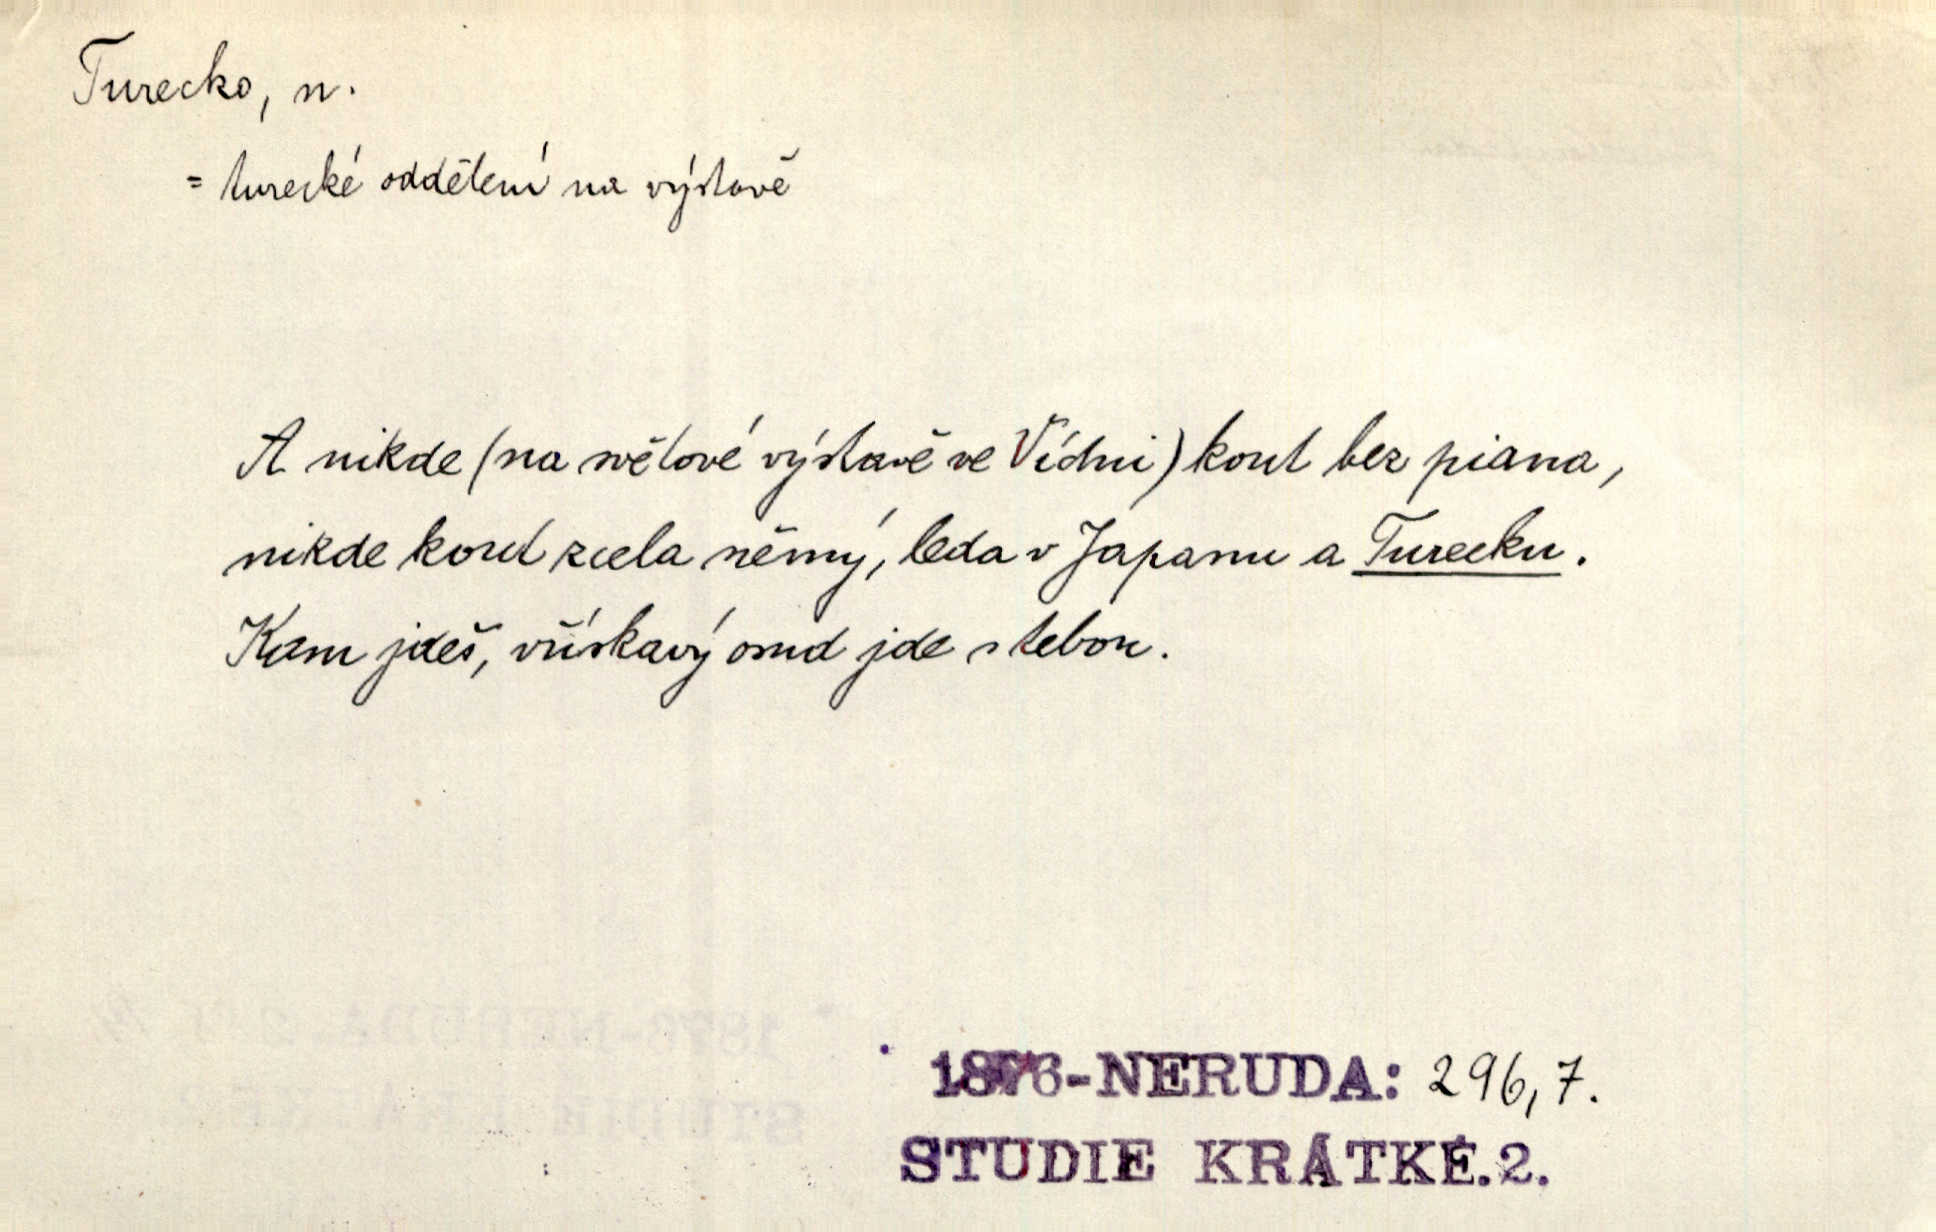 Turecko, n.
= turecké oddělení na výstavě
A nikde (na světové výstavě ve Vídni) kout bez piana,
nikde kout zcela němý, leda v Japanu a Turecku.
Kam jdeš, vřískavý osud jde s tebou.
1876-NERUDA: 296,7.
STUDIE KRÁTKÉ.2.